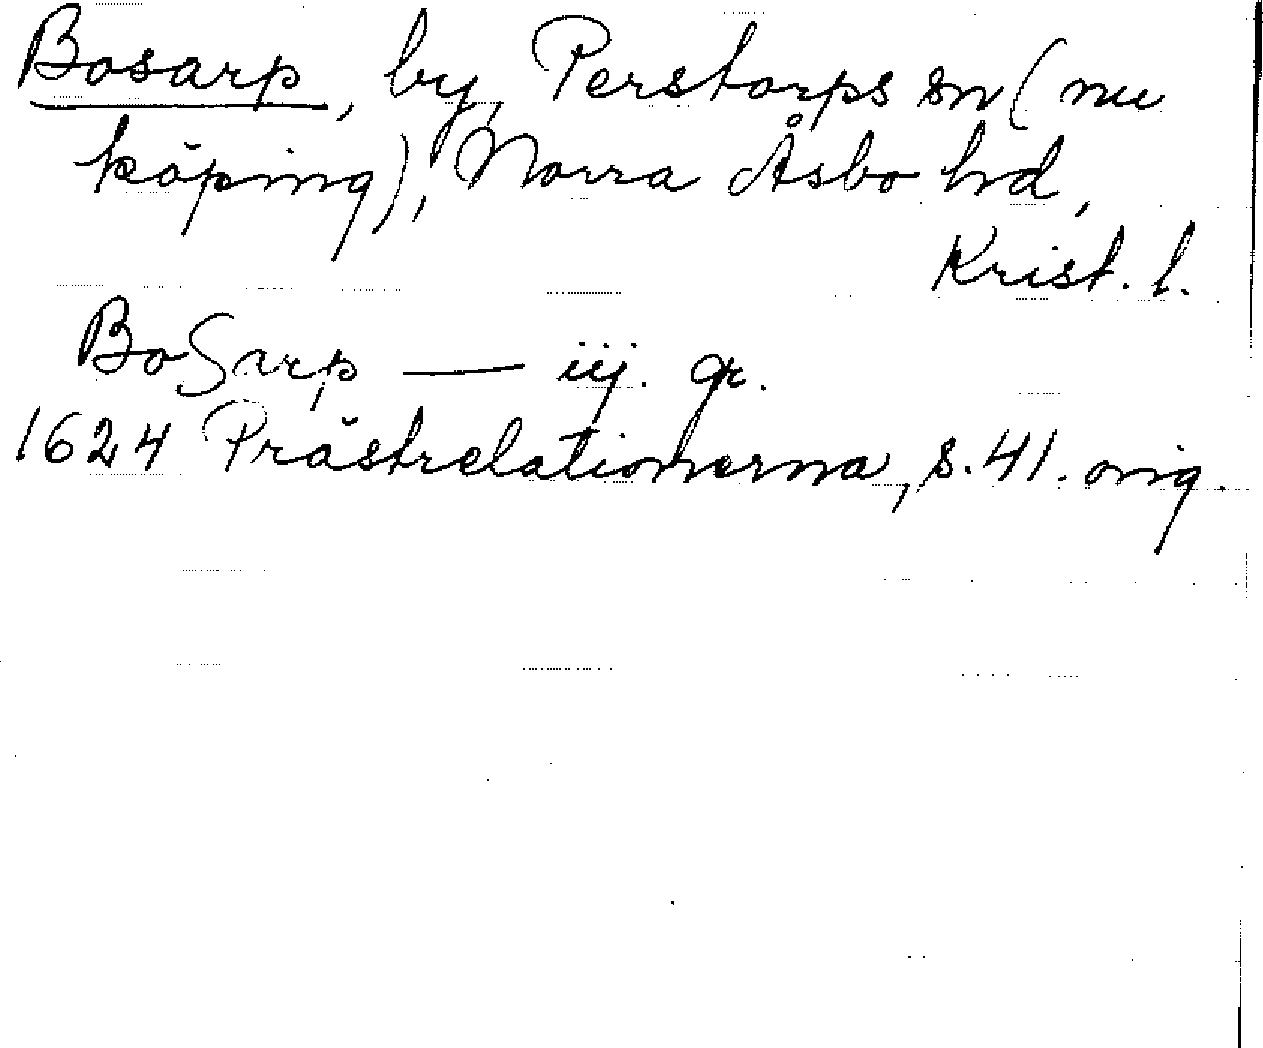 Bosarp, by, Perstorps sn (nu
köping), Norra Åsbo hd,
Krist. l.
BoSarp — iij. gr.
1624 Prästrelationerna, s. 41. orig.